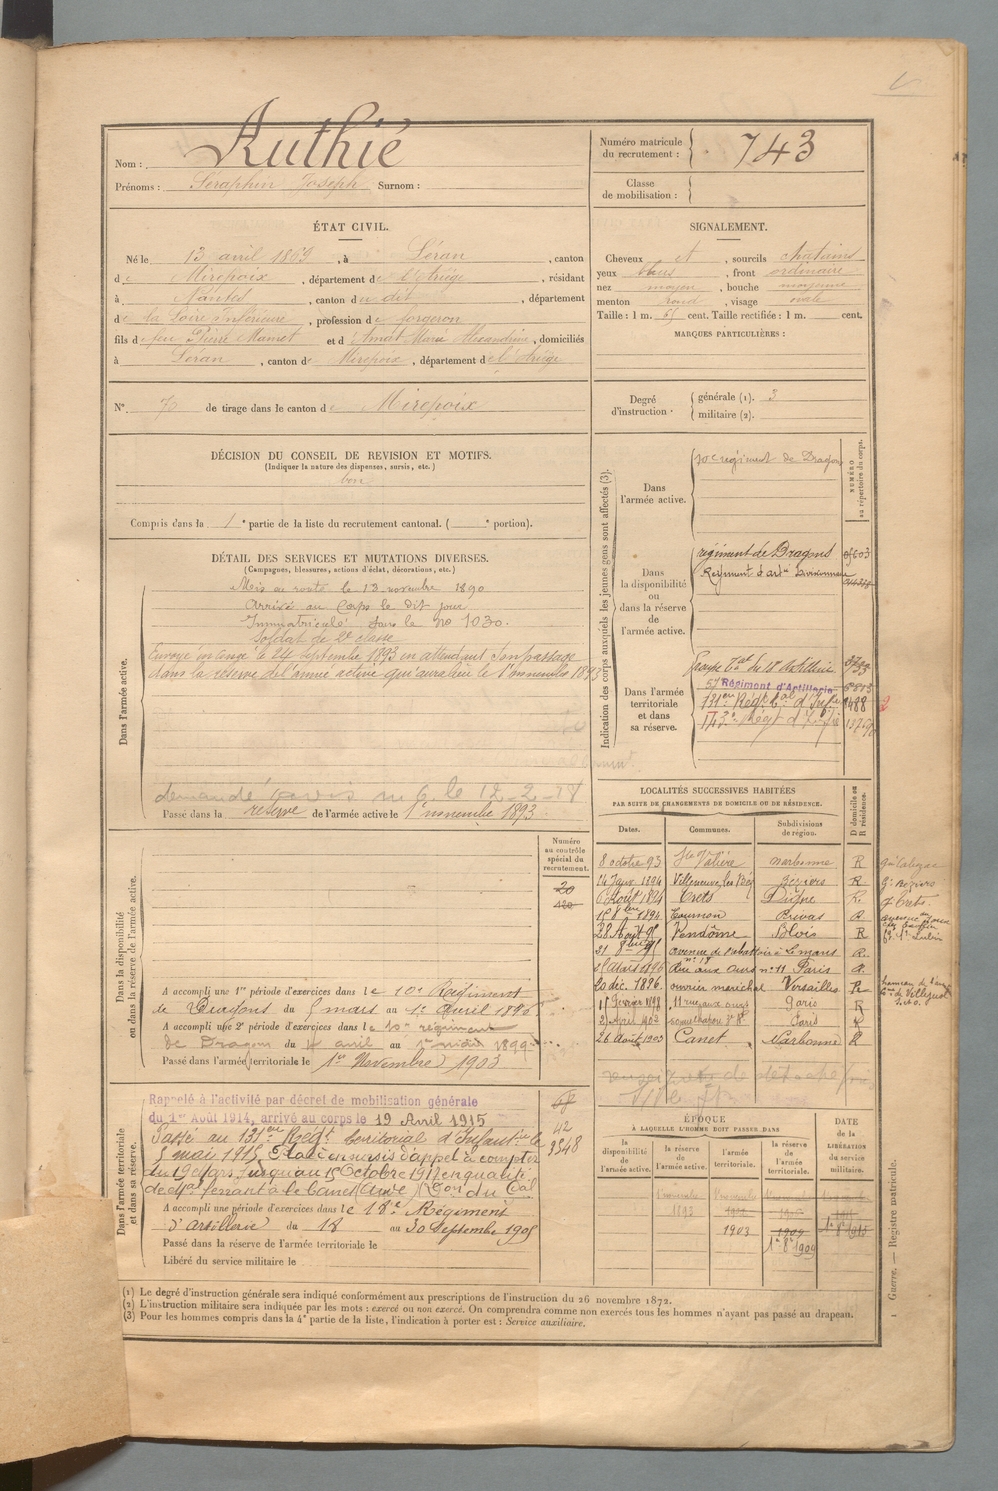 Nom : Authié
Prénoms : Séraphin Joseph Surnom :
Numéro matricule du recrutement : 743
Classe de mobilisation :
ÉTAT CIVIL.
Né le 13 avril 1869, à Léran, canton
de Mirepoix, département de l'Ariège, résidant
à Nantes, canton du dit, département
de la Loire Inférieure, profession de forgeron
fils de feu Pierre Mamet et d'Amat Marie Alexandrine, domiciliés
à Léran, canton de Mirepoix, département de l'Ariège
SIGNALEMENT.
Cheveux et, sourcils châtains
yeux bleus, front ordinaire
nez moyen, bouche moyenne
menton rond, visage ovale
Taille : 1 m. 65 cent. Taille rectifiée : 1 m. cent.
MARQUES PARTICULIÈRES :
N° 70 de tirage dans le canton de Mirepoix
Degré d'instruction : générale (1). 3
militaire (2).
DÉCISION DU CONSEIL DE REVISION ET MOTIFS.
(Indiquer la nature des dispenses, sursis, etc.)
bon
Compris dans la 1e partie de la liste du recrutement cantonal. ( e portion).
DÉTAIL DES SERVICES ET MUTATIONS DIVERSES.
(Campagnes, blessures, actions d'éclat, décorations, etc.)
Dans l'armée active.
Mis en route le 13 novembre 1890
Arrivé au Corps le dit jour
Immatriculé sous le no 1030.
Soldat de 2e classe
Envoyé en congé le 24 septembre 1893 en attendant son passage
dans la réserve de l'armée active qui aura lieu le 1er novembre 1893
demandé avis m 6. le 12-2-18
Passé dans la réserve de l'armée active le 1er novembre 1893
Indication des corps auxquels les jeunes gens sont affectés (3).
NUMÉRO au répertoire du corps.
Dans l'armée active.
10e régiment de Dragons
Dans la disponibilité ou dans la réserve de l'armée active.
régiment de Dragons
Régiment d'artie Divisionnaire
Dans l'armée territoriale et dans sa réserve.
Groupe Tal du 18e Artillerie
57 Régiment d'Artillerie
131eme Régt tal d'Infie 1488
LOCALITÉS SUCCESSIVES HABITÉES
PAR SUITE DE CHANGEMENTS DE DOMICILE OU DE RÉSIDENCE.
Dates. Communes. Subdivisions de région. D domicile ou R résidence.
8 octobre 93 Ste Valière Narbonne R
14 Janv 1894 Villeneuve les Béz Béziers R
6 Août 1894 Trets Digne R.
15 8bre 1894 Tournon Privas R.
28 Août 95 Vendôme Blois R
21 8bre 95 avenue de l'abattoir à Le mans R.
n° 18
Rue aux Ours n° 11 Paris R.
20 déc. 1896 ouvrier maréchal Versailles R.
11 février 1898 11 rue aux ours Paris R
Paris R
26 Août 1903 Canet Narbonne R
Numéro au contrôle spécial du recrutement.
20
Dans la disponibilité ou dans la réserve de l'armée active.
A accompli une 1re période d'exercices dans le 10e Régiment
de Dragons du 5 mars au 1er Avril 1896
A accompli une 2e période d'exercices dans le 10e régiment
de Dragons du 4 avril au 1er mai 1899
Passé dans l'armée territoriale le 1er Novembre 1903
Dans l'armée territoriale et dans sa réserve.
Rappelé à l'activité par décret de mobilisation générale
du 1er Août 1914, arrivé au corps le 19 Avril 1915
Passé au 131eme Régt territorial d'Infantie le
5 mai 1915 Placé en sursis d'appel à compter
du 19 Mars jusqu'au 15 Octobre 1917 en qualité
de Mal ferrant à le Canet (Aude)
42
3548
A accompli une période d'exercices dans le 18e Régiment
d'artillerie du 18 au 30 Septembre 1905
Passé dans la réserve de l'armée territoriale le
Libéré du service militaire le
ÉPOQUE
À LAQUELLE L'HOMME DOIT PASSER DANS
la disponibilité de l'armée active.
la réserve de l'armée active.
l'armée territoriale.
la réserve de l'armée territoriale.
DATE de la LIBÉRATION du service militaire.
1893
1903 1909
1er 8bre 1909
(1) Le degré d'instruction générale sera indiqué conformément aux prescriptions de l'instruction du 26 novembre 1872.
(2) L'instruction militaire sera indiquée par les mots : exercé ou non exercé. On comprendra comme non exercés tous les hommes n'ayant pas passé au drapeau.
(3) Pour les hommes compris dans la 4e partie de la liste, l'indication à porter est : Service auxiliaire.
Guerre. — Registre matricule.